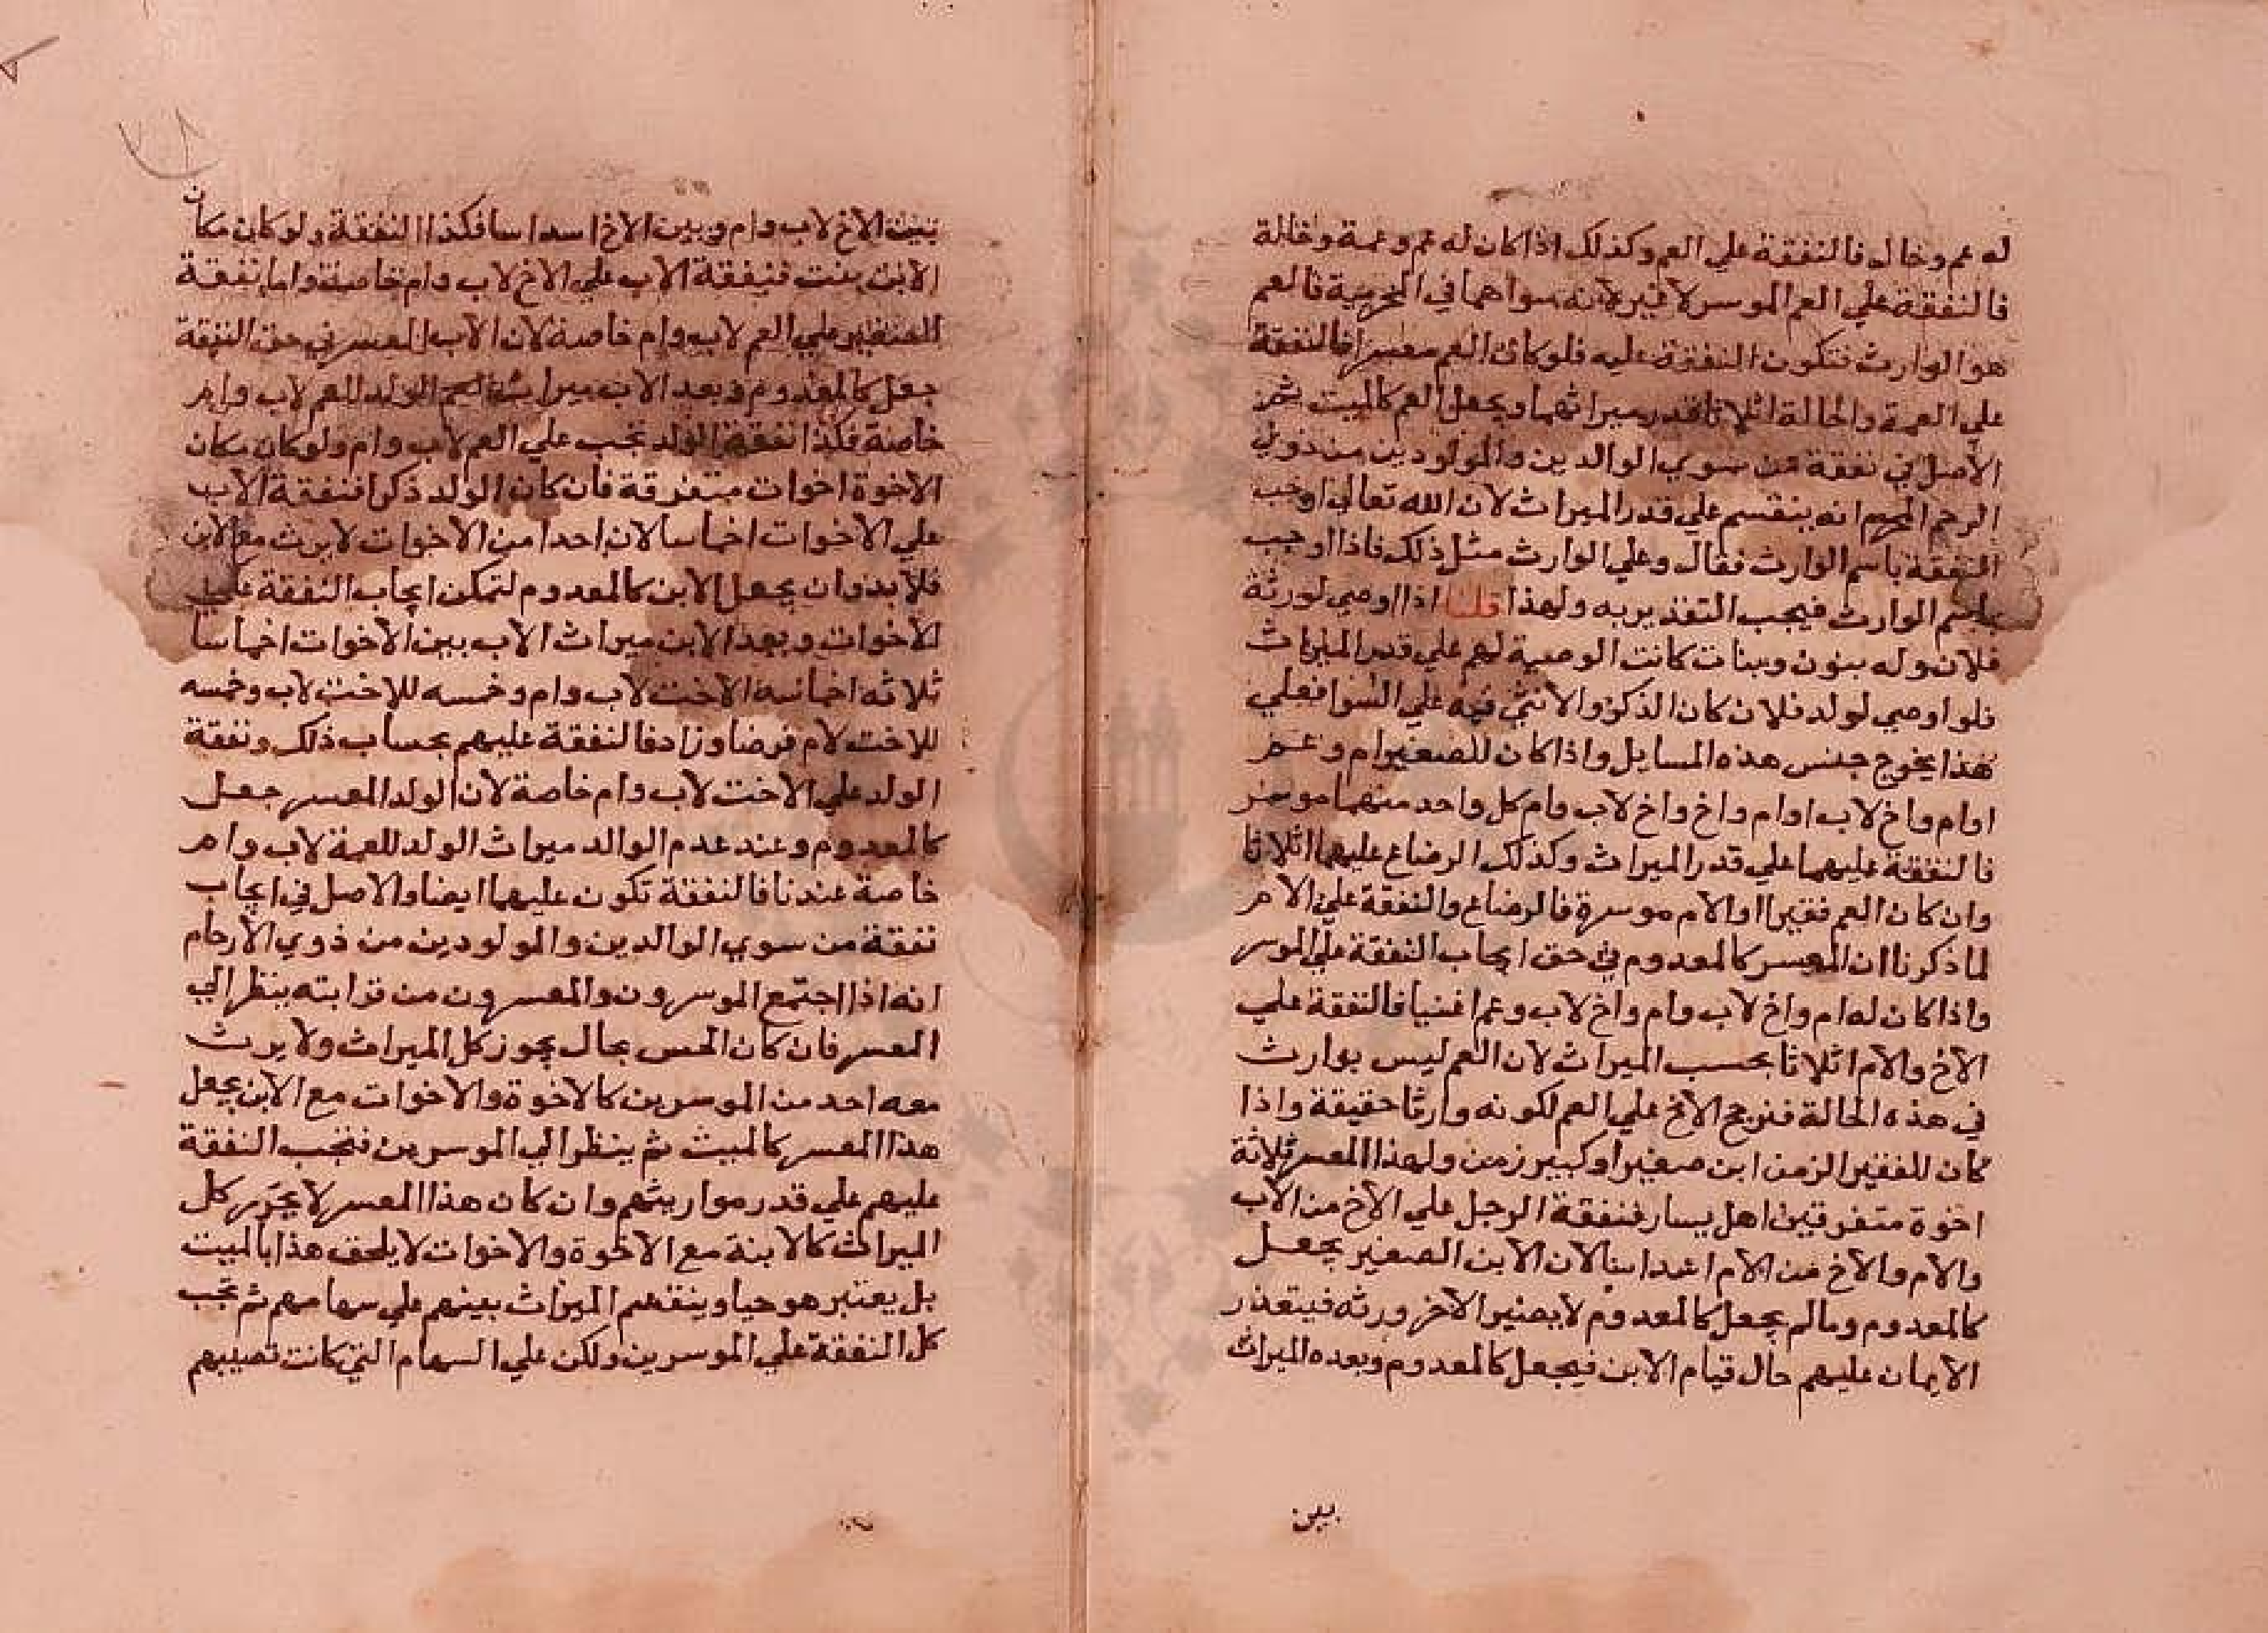 له عم وخال فالنفقة علي العم وكذلك اذا كان له عم وعمة وخالة
فالنفقة علي العم الموسر لا غير لانه سواهما في المحرمية فالعم
هو الوارث فتكون النفقة عليه فلو كان العم معسرا فالنفقة
علي العمة والخالة اثلاثا قدر ميراثهما ويجعل العم كالميت ثم
الاصل في نفقة من سوي الوالدين والمولودين من ذوي
الرحم المحرم انه ينقسم علي قدر الميراث لان الله تعالي اوجب
النفقة باسم الوارث فقال وعلي الوارث مثل ذلك فاذا اوجب
باسم الوارث فيجب التقدير به ولهذا قلنا اذا اوصي لورثة
فلان وله بنون وبنات كانت الوصية لهم علي قدر الميراث
فلو اوصي لولد فلان كان الذكر والانثي فيه علي السوا فعلي
هذا يخرج جنس هذه المسايل واذا كان للصغير ام وعم
او ام واخ لاب او ام واخ واخ لاب وام كل واحد منهما موسر
فالنفقة عليهما علي قدر الميراث وكذلك الرضاع عليهما اثلاثا
وان كان العم فقيرا او الام موسرة فالرضاع والنفقة علي الام
لما ذكرنا ان المعسر كالمعدوم في حق ايجاب النفقة علي الموسر
واذا كان له ام واخ لاب وام واخ لاب وعم اغنيا فالنفقة علي
الاخ والام اثلاثا بحسب الميراث لان العم ليس بوارث
في هذه الحالة فترجح الاخ علي العم لكونه وارثا حقيقة واذا
كان للفقير الزمن ابن صغير او كبير زمن ولهذا المعسر ثلاثة
اخوة متفرقين اهل يسار فنفقة الرجل علي الاخ من الاب
والام والاخ من الام اسداسا لان الابن الصغير يجعل
كالمعدوم وما لم يجعل كالمعدوم لا يصير الاخر ورثه فيتعذر
الايمان عليهم حال قيام الابن فيجعل كالمعدوم وبعده الميراث
بين
بين الاخ لاب وام وبين الاخ اسداسا فكذا النفقة ولو كان مكان
الابن بنت فنفقة الاب علي الاخ لاب وام خاصة واما نفقة
الصغير علي العم لاب وام خاصة لان الاب المعسر في حق النفقة
جعل كالمعدوم وبعد الاب ميراث الولد للعم لاب وام
خاصة فكذا نفقة الولد تجب علي العم لاب وام ولو كان مكان
الاخوة اخوات متفرقة فان كان الولد ذكرا فنفقة الاب
علي الاخوات اخماسا لان احدا من الاخوات لا يرث مع الابن
فلا بد وان يجعل الابن كالمعدوم لتمكن ايجاب النفقة علي
الاخوات وبعد الابن ميراث الاب بين الاخوات اخماسا
ثلاثه اخماسه الاخت لاب وام وخمسه للاخت لاب وخمسه
للاخت لام فرضا وزادفا لنفقة عليهم بحساب ذلك ونفقة
الولد علي الاخت لاب وام خاصة لان الولد المعسر جعل
كالمعدوم وعند عدم الوالد ميراث الولد للعمة لاب وام
خاصة عندنا فالنفقة تكون عليهما ايضا والاصل في ايجاب
نفقة من سوي الوالدين والمولودين من ذوي الارحام
انه اذا اجتمع الموسرون والمعسرون من قرابته ينظر الي
المعسر فان كان بحال يحوز كل الميراث ولا يرث
معه احد من الموسرين كالاخوة والاخوات مع الابن يجعل
هذا المعسر كالميت ثم ينظر الي الموسرين فتجب النفقة
عليهم علي قدر مواريثهم وان كان هذا المعسر لا يحرم كل
الميراث كالابنة مع الاخوة والاخوات لا يلحق هذا بالميت
بل يعتبر هو حيا وينقسم الميراث بينهم علي سهامهم ثم تجب
كل النفقة علي الموسرين ولكن علي السهام التي كانت تصيبهم